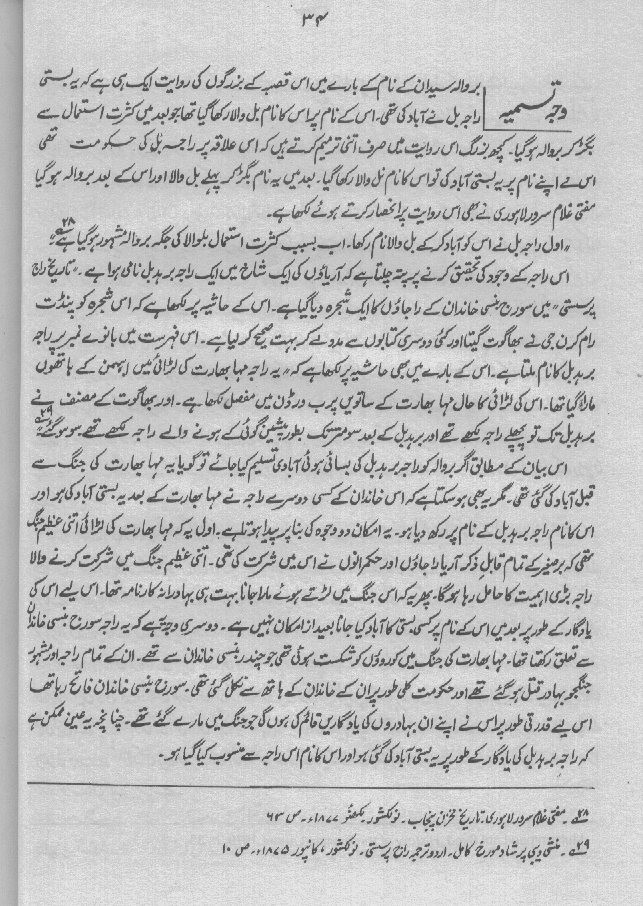 ۳۴
وجہ تسمیہ
بروالہ سیدان کے نام کے بارے میں اس قصبہ کے بزرگوں کی روایت ایک ہی ہے کہ یہ بستی
راجہ بل نے آباد کی تھی۔ اس کے نام پر اس کا نام بل والا رکھا گیا تھا جو بعد میں کثرت استعمال سے
بگڑ کر بروالہ ہو گیا۔ کچھ بزرگ اس روایت میں صرف اتنی ترمیم کرتے ہیں کہ اس علاقہ پر راجہ بل کی حکومت تھی
اس نے اپنے نام پر یہ بستی آباد کی تو اس کا نام بل والا رکھا گیا۔ بعد میں یہ نام بگڑ کر پہلے بل والا اور اس کے بعد بروالہ ہو گیا
مفتی غلام سرور لاہوری نے بھی اس روایت پر انحصار کرتے ہوئے لکھا ہے۔
"اول راجہ بل نے اس کو آباد کر کے بل والا نام رکھا۔ اب بسبب کثرت استعمال بلوالا کی جگہ بروالہ مشہور ہو گیا ہے"۲۸
اس راجہ کے وجود کی تحقیق کرنے پر پتہ چلتا ہے کہ آریاؤں کی ایک شاخ میں ایک راجہ برہدبل نامی ہوا ہے۔ "تاریخ راج
پرستی" میں سورج بنسی خاندان کے راجاؤں کا ایک شجرہ دیا گیا ہے۔ اس کے حاشیہ پر لکھا ہے کہ اس شجرہ کو پنڈت
رام کرن جی نے بھاگوت گیتا اور کئی دوسری کتابوں سے مدد لے کر بہت صحیح کر لیا ہے۔ اس فہرست میں بانوے نمبر پر راجہ
برہدبل کا نام ملتا ہے۔ اس کے بارے میں بھی حاشیہ پر لکھا ہے کہ "یہ راجہ مہا بھارت کی لڑائی میں ابھمن کے ہاتھوں
مارا گیا تھا۔ اس کی لڑائی کا حال مہا بھارت کے ساتویں پرب درڈون میں مفصل لکھا ہے۔ اور بھاگوت کے مصنف نے
برہدبل تک تو پچھلے راجہ لکھے تھے اور برہدبل کے بعد سومتر تک بطور پیشین گوئی کے ہونے والے راجہ لکھے تھے سو ہو گئے"۲۹
اس بیان کے مطابق اگر بروالہ کو راجہ برہدبل کی بسائی ہوئی آبادی تسلیم کیا جائے تو گویا یہ مہا بھارت کی جنگ سے
قبل آباد کی گئی تھی۔ مگر یہ بھی ہو سکتا ہے کہ اس خاندان کے کسی دوسرے راجہ نے مہا بھارت کے بعد یہ بستی آباد کی ہو اور
اس کا نام راجہ برہدبل کے نام پر رکھ دیا ہو۔ یہ امکان دو وجوہ کی بنا پر پیدا ہوتا ہے۔ اول یہ کہ مہا بھارت کی لڑائی اتنی عظیم جنگ
تھی کہ برصغیر کے تمام قابل ذکر آریا راجاؤں اور حکمرانوں نے اس میں شرکت کی تھی۔ اتنی عظیم جنگ میں شرکت کرنے والا
راجہ بڑی اہمیت کا حامل رہا ہو گا۔ پھر یہ کہ اس جنگ میں لڑتے ہوئے مارا جانا بہت ہی بہادرانہ کارنامہ تھا۔ اس لیے اس کی
یادگار کے طور پر بعد میں اس کے نام پر کسی بستی کا آباد کیا جانا بعید از امکان نہیں ہے۔ دوسری وجہ یہ ہے کہ یہ راجہ سورج بنسی خاندان
سے تعلق رکھتا تھا۔ مہا بھارت کی جنگ میں کوروؤں کو شکست ہوئی تھی جو چندر بنسی خاندان سے تھے۔ ان کے تمام راجہ اور مشہور
جنگجو بہادر قتل ہو گئے تھے اور حکومت کلی طور پر ان کے خاندان کے ہاتھ سے نکل گئی تھی۔ سورج بنسی خاندان فاتح رہا تھا
اس لیے قدرتی طور پر اس نے اپنے ان بہادروں کی یادگاریں قائم کی ہوں گی جو جنگ میں مارے گئے تھے۔ چنانچہ یہ عین ممکن ہے
کہ راجہ برہدبل کی یادگار کے طور پر یہ بستی آباد کی گئی ہو اور اس کا نام اس راجہ سے منسوب کیا گیا ہو۔
۲۸۔ مفتی غلام سرور لاہوری۔ تاریخ مخزن پنجاب۔ نولکشور۔ لکھنؤ ۱۸۷۷ء۔ ص ۶۳
۲۹۔ منشی دیبی پرشاد مورخ کامل۔ اردو ترجمہ راج پرستی۔ نولکشور، کانپور ۱۸۷۵ء۔ ص ۱۰